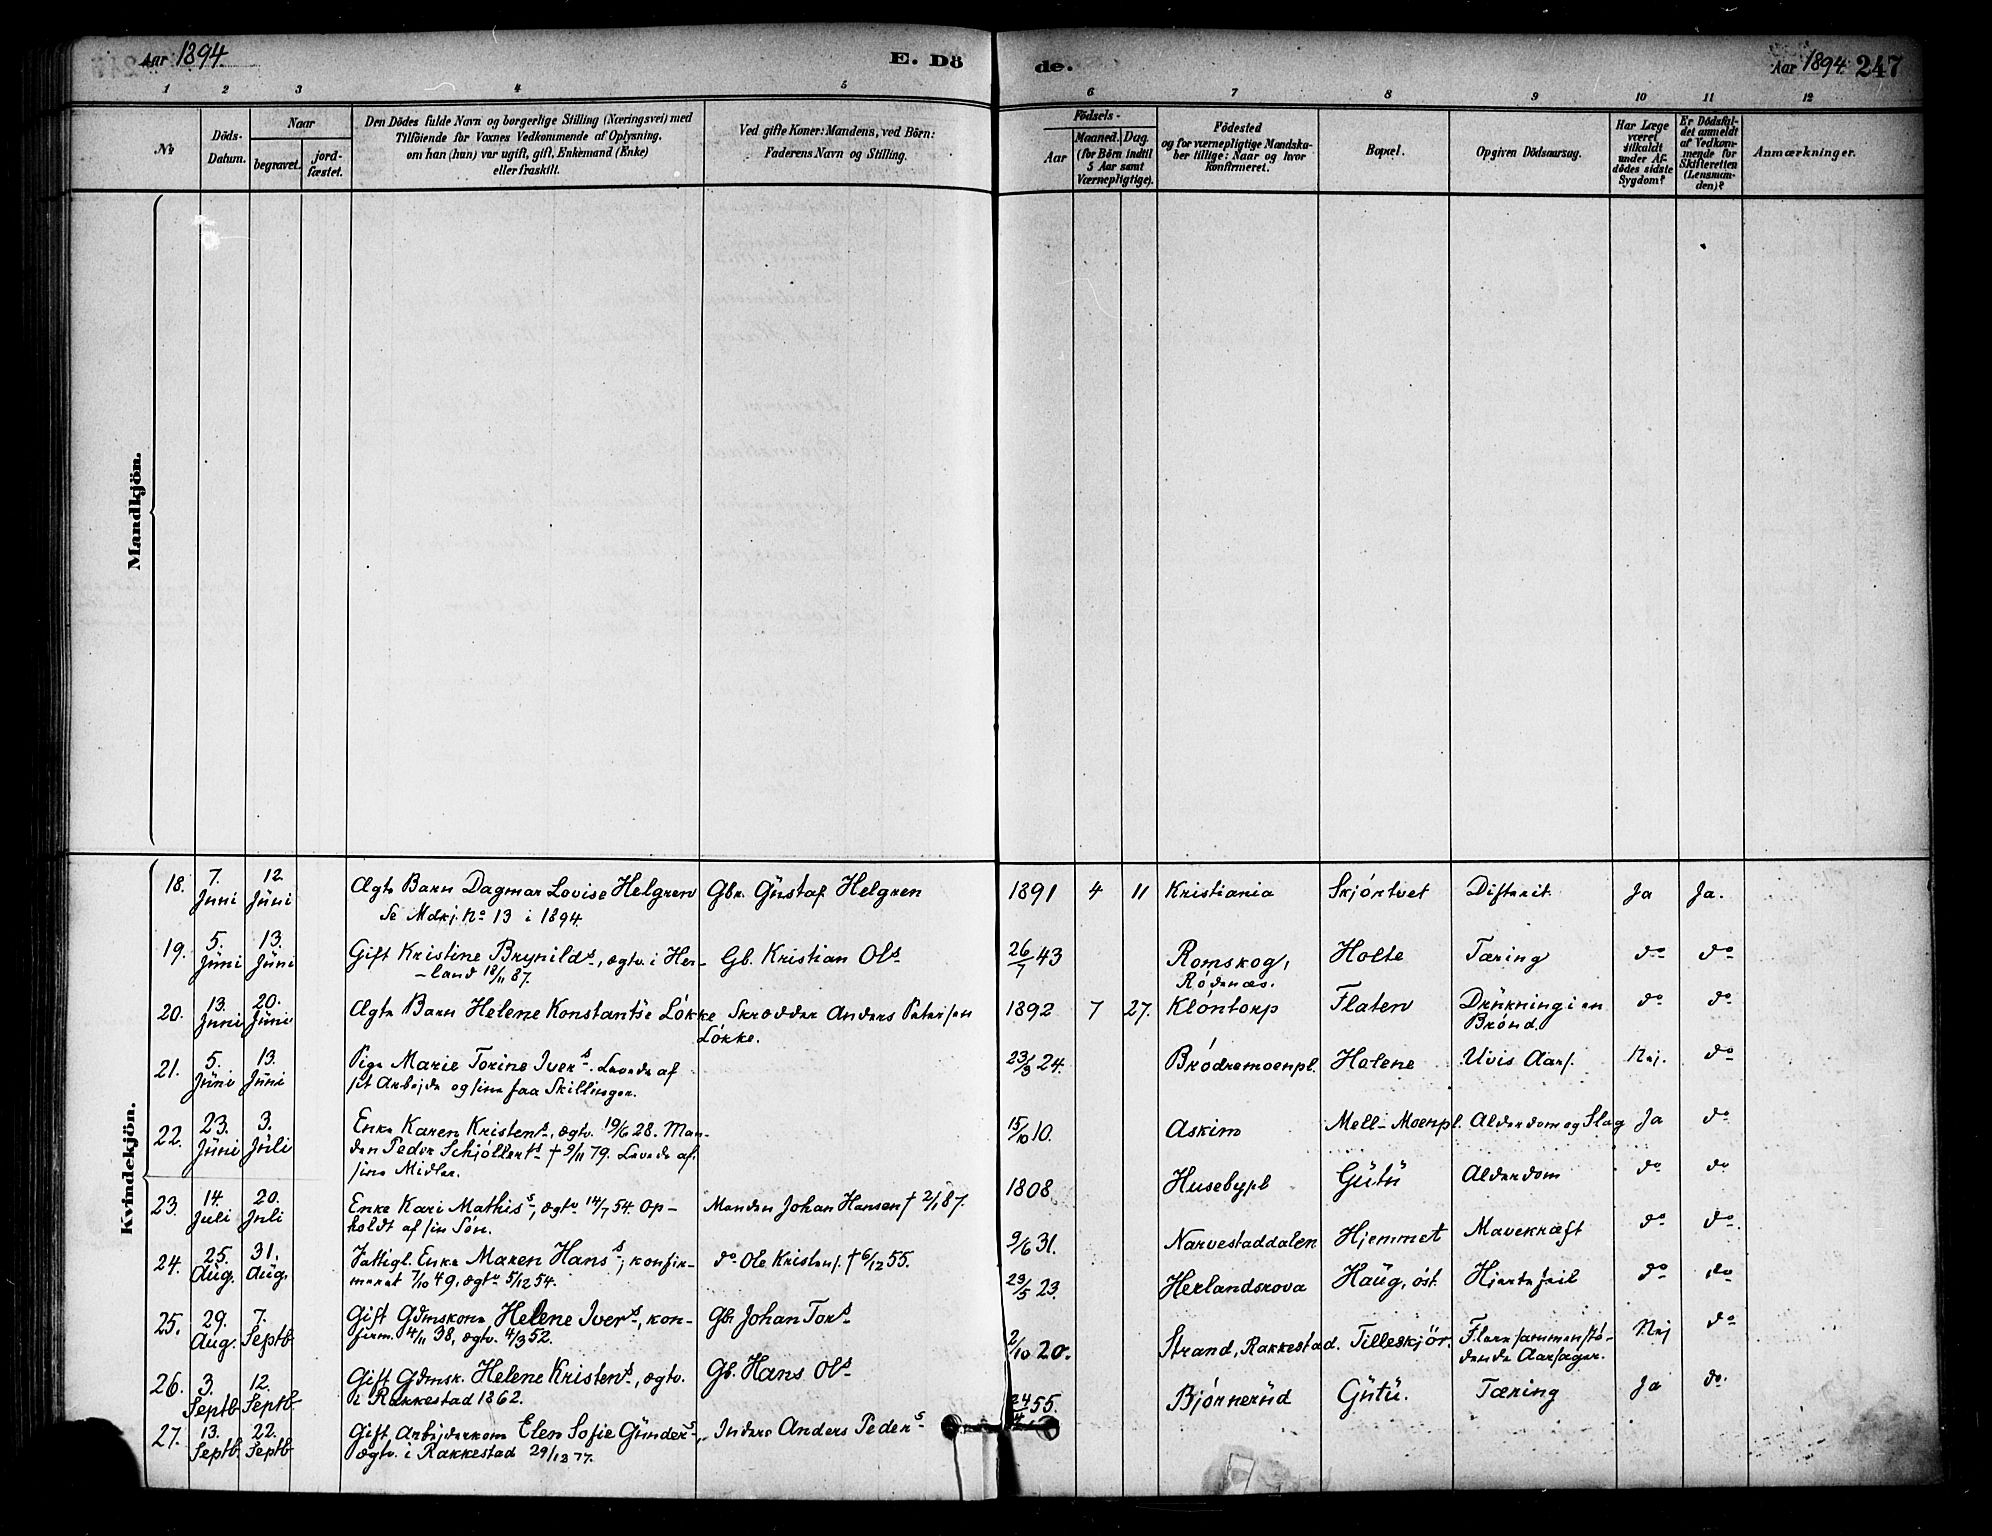 Aar 1894
E. Dö
de.
Aar 1894 247
1 2 3 4 5 6 7 8 9 10 11 12
№
Döds-
Datum.
Naar
begravet.
jord-
fæstet.
Den Dödes fulde Navn og borgerlige Stilling (Næringsvei) med
Tilföiende for Voxnes Vedkommende af Oplysning,
om han (hun) var ugift, gift, Enkemand (Enke)
eller fraskilt.
Ved gifte Koner: Mandens, ved Börn:
Faderens Navn og Stilling.
Födsels-
Aar
Maaned. Dag.
(for Börn indtil
5 Aar samt
Værnepligtige).
Födested
og for værnepligtige Mandska-
ber tillige: Naar og hvor
Konfirmeret.
Bopæl.
Opgiven Dödsaarsag.
Har Læge
været
tilkaldt
under Af-
dödes sidste
Sygdom?
Er Dödsfal-
det anmeldt
af Vedkom-
mende for
Skifteretten
(Lensman-
den)?
Anmærkninger.
Mandkjön.
Kvindekjön.
18. 7. Juni 12 Juni Ægte Barn Dagmar Lovise Helgren Gbr. Gustaf Helgren 1891 4 11 Kristiania Skjørtvet Difterit Ja Ja.
Se Mdkj. No 13 i 1894.
19. 5. Juni 13. Juni Gift Kristine Brynilds, ægtv. i Her- Gb. Kristian Ols 26/7 43 Romskog, Holte Tæring do do
-land 18/11 87. Rødenæs.
20. 13. Juni 20. Juni Ægte Barn Helene Konstantse Løkke Skrædder Anders Petersen 1892 7 27. Kløntorp Flaten Drukning i en do do
Løkke. Brønd.
21. 5. Juni 13. Juni Pige Marie Torine Ivers. Levede af 23/3 24. Brødremoenpl. Holene Uvis Aars. Nej. do
sit Arbejde og sine faa Skillinger.
22. 23. Juni 3. Juli Enke Karen Kristens, ægtv. 19/6 28. Man- 15/10 10. Askim Mell-Moenpl. Alderdom og Slag Ja do
den Peder Schjøllerts † 9/11 79. Levede af
sine Midler.
23. 14. Juli 20. Juli Enke Kari Mathis, ægtv 14/7 54. Op- Manden Johan Hansen † 2/1 87. 1808 Husebypl Gutu Alderdom do do
holdt af sin Søn.
24. 25. Aug. 31. Aug. Fattigl. Enke Maren Hans; konfir- do Ole Kristens. † 6/12 55. 9/6 31. Narvestaddalen Hjemmet Mavekræft do do.
meret 7/10 49, ægtv 5/12 54.
25. 29. Aug. 7. Septb Gift Gdmskone Helene Ivers, kon- Gbr Johan Tors 23/5 23. Herlandsrova Haug, øst. Hjertefeil do do
firm. 4/11 38, ægtv. 4/3 52.
26. 3. Septb 12. Septb Gift Gdmsk. Helene Kristens, ægtv. Gb. Hans Ols 2/10 20. Strand, Rakkestad. Tilleskjør. Flere sammenstø- Nej do
i Rakkestad 1862. dende Aarsager.
27. 13. Septb. 22. Septb Gift Arbejderkone Elen Sofie Gunders, Inders Anders Peders 24/4 55. Bjørnerud Gutu. Tæring Ja do.
ægtv. i Rakkestad 29/12 77.